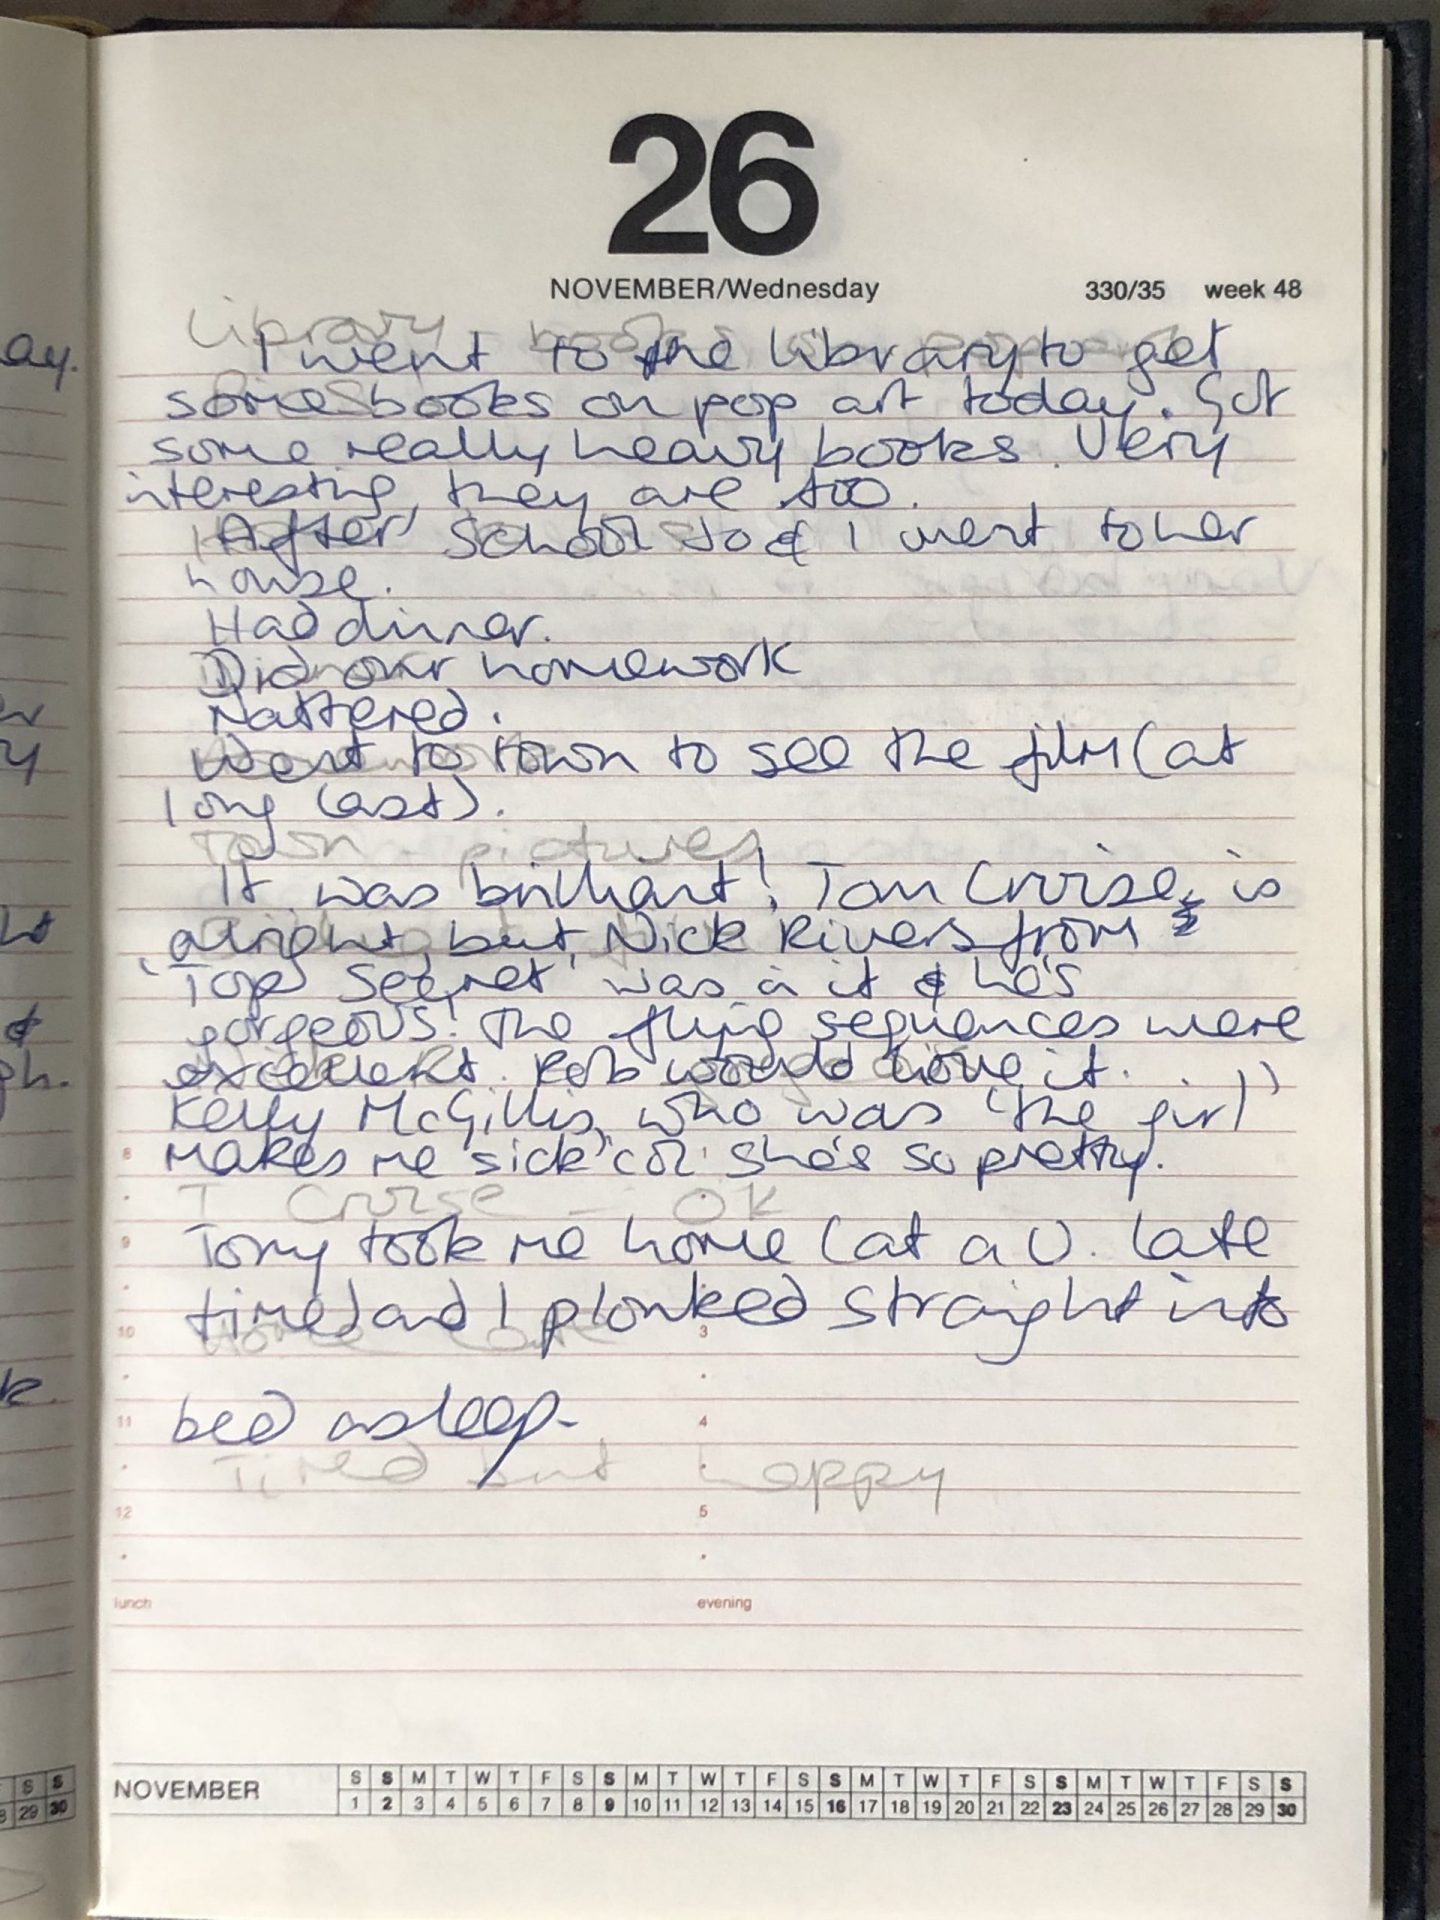 26
NOVEMBER/Wednesday 330/35 week 48
Library books
I went to the library to get
some books on pop art today. Got
some really heavy books. Very
interesting, they are too.
After school Jo & I went to her
house.
Had dinner.
Did our homework
Nattered.
Went to town to see the film (at
long last).
Town - pictures
It was brilliant! Tom Cruise, is
alright, but, Nick Rivers from
'Top Secret' was in it & he's
gorgeous! The flying sequences were
excellent. Rob would love it.
Kelly McGillis, who was 'the girl'
makes me sick 'coz' she's so pretty.
T Cruise - OK
Tony took me home (at a v. late
time) and I plonked straight into
Home late
bed asleep.
Tired but happy
8
9
10 3
11 4
12 5
lunch evening
NOVEMBER S S M T W T F S S M T W T F S S M T W T F S S M T W T F S S
1 2 3 4 5 6 7 8 9 10 11 12 13 14 15 16 17 18 19 20 21 22 23 24 25 26 27 28 29 30
ay.
y
&
gh.
k.
S S
29 30